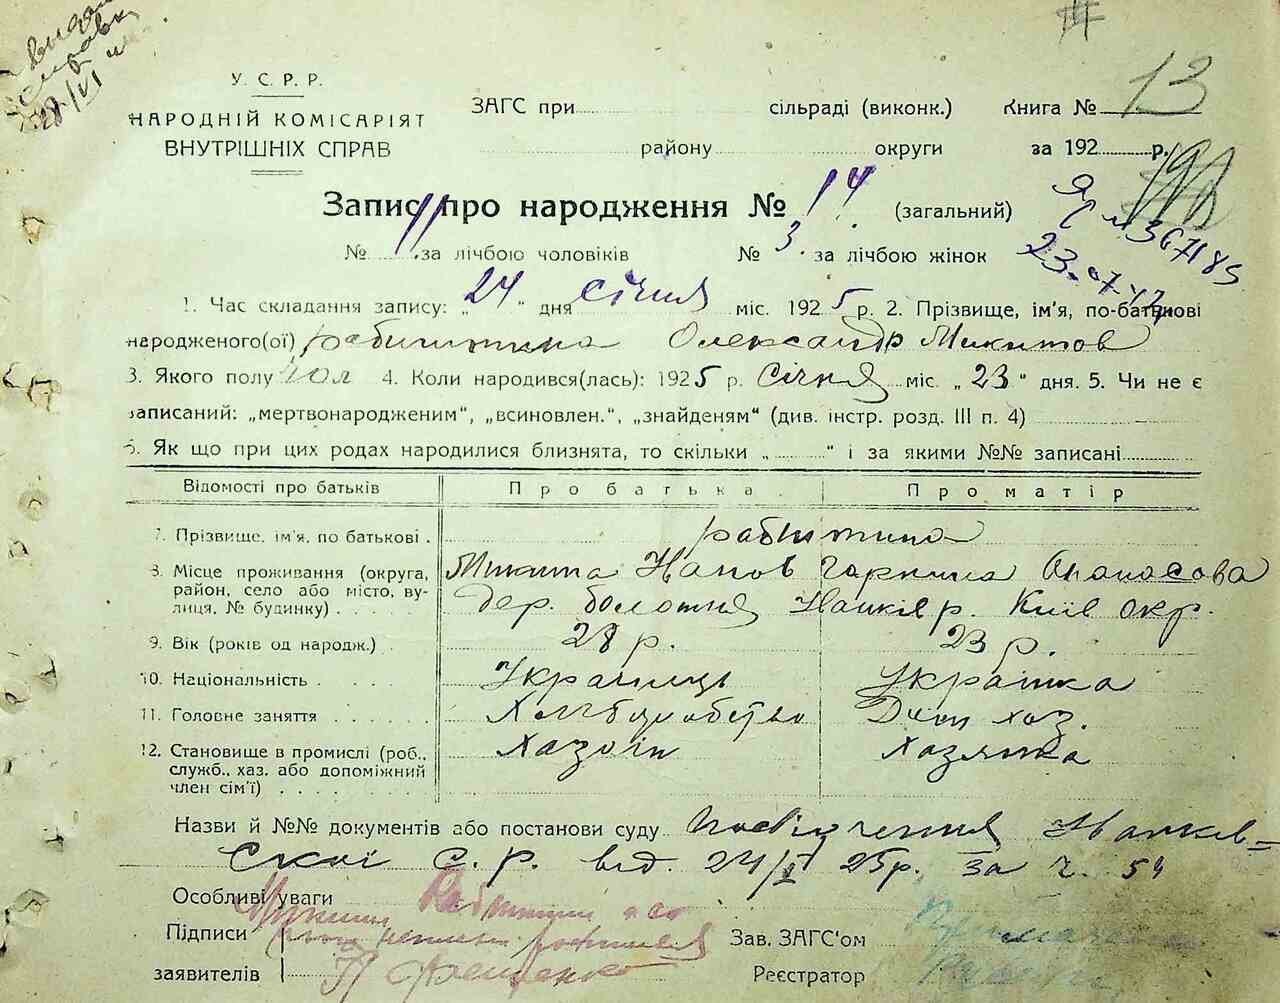 видана
справка
28/VI
У. С. Р. Р.
НАРОДНІЙ КОМІСАРІЯТ
ВНУТРІШНІХ СПРАВ
ЗАГС при сільраді (виконк.) Книга № 13
району округи за 192 р.
Запис про народження № 14 (загальний)
№ 11 за лічбою чоловіків № 3 за лічбою жінок
23
1. Час складання запису: „24" дня січня міс. 1925 р. 2. Прізвище, ім'я, по-батькові
народженого(ої) Олександр Микитов
3. Якого полу чол 4. Коли народився(лась): 1925 р. Січня міс. „23" дня. 5. Чи не є
записаний: „мертвонародженим", „всиновлен.", „знайденям" (див. інстр. розд. III п. 4)
6. Як що при цих родах народилися близнята, то скільки „ " і за якими №№ записані
Відомості про батьків Про батька Про матір
7. Прізвище, ім'я, по батькові
8. Місце проживання (округа, Микита Іванов Гарпина Опанасова
район, село або місто, ву- дер. Болотня Іванків р. Київ окр.
лиця, № будинку)
9. Вік (років од народж.) 28 р. 23 р.
10. Національність Украінець Українка
11. Головне заняття Хліборобство Дом хаз.
12. Становище в промислі (роб., Хазяін Хазяйка
служб., хаз. або допоміжний
член сім'ї)
Назви й №№ документів або постанови суду Посвідчення Іванків=
ської с. р. від 24/I 25р. за ч. 54
Особливі уваги
Підписи Зав. ЗАГС'ом
заявителів Реєстратор